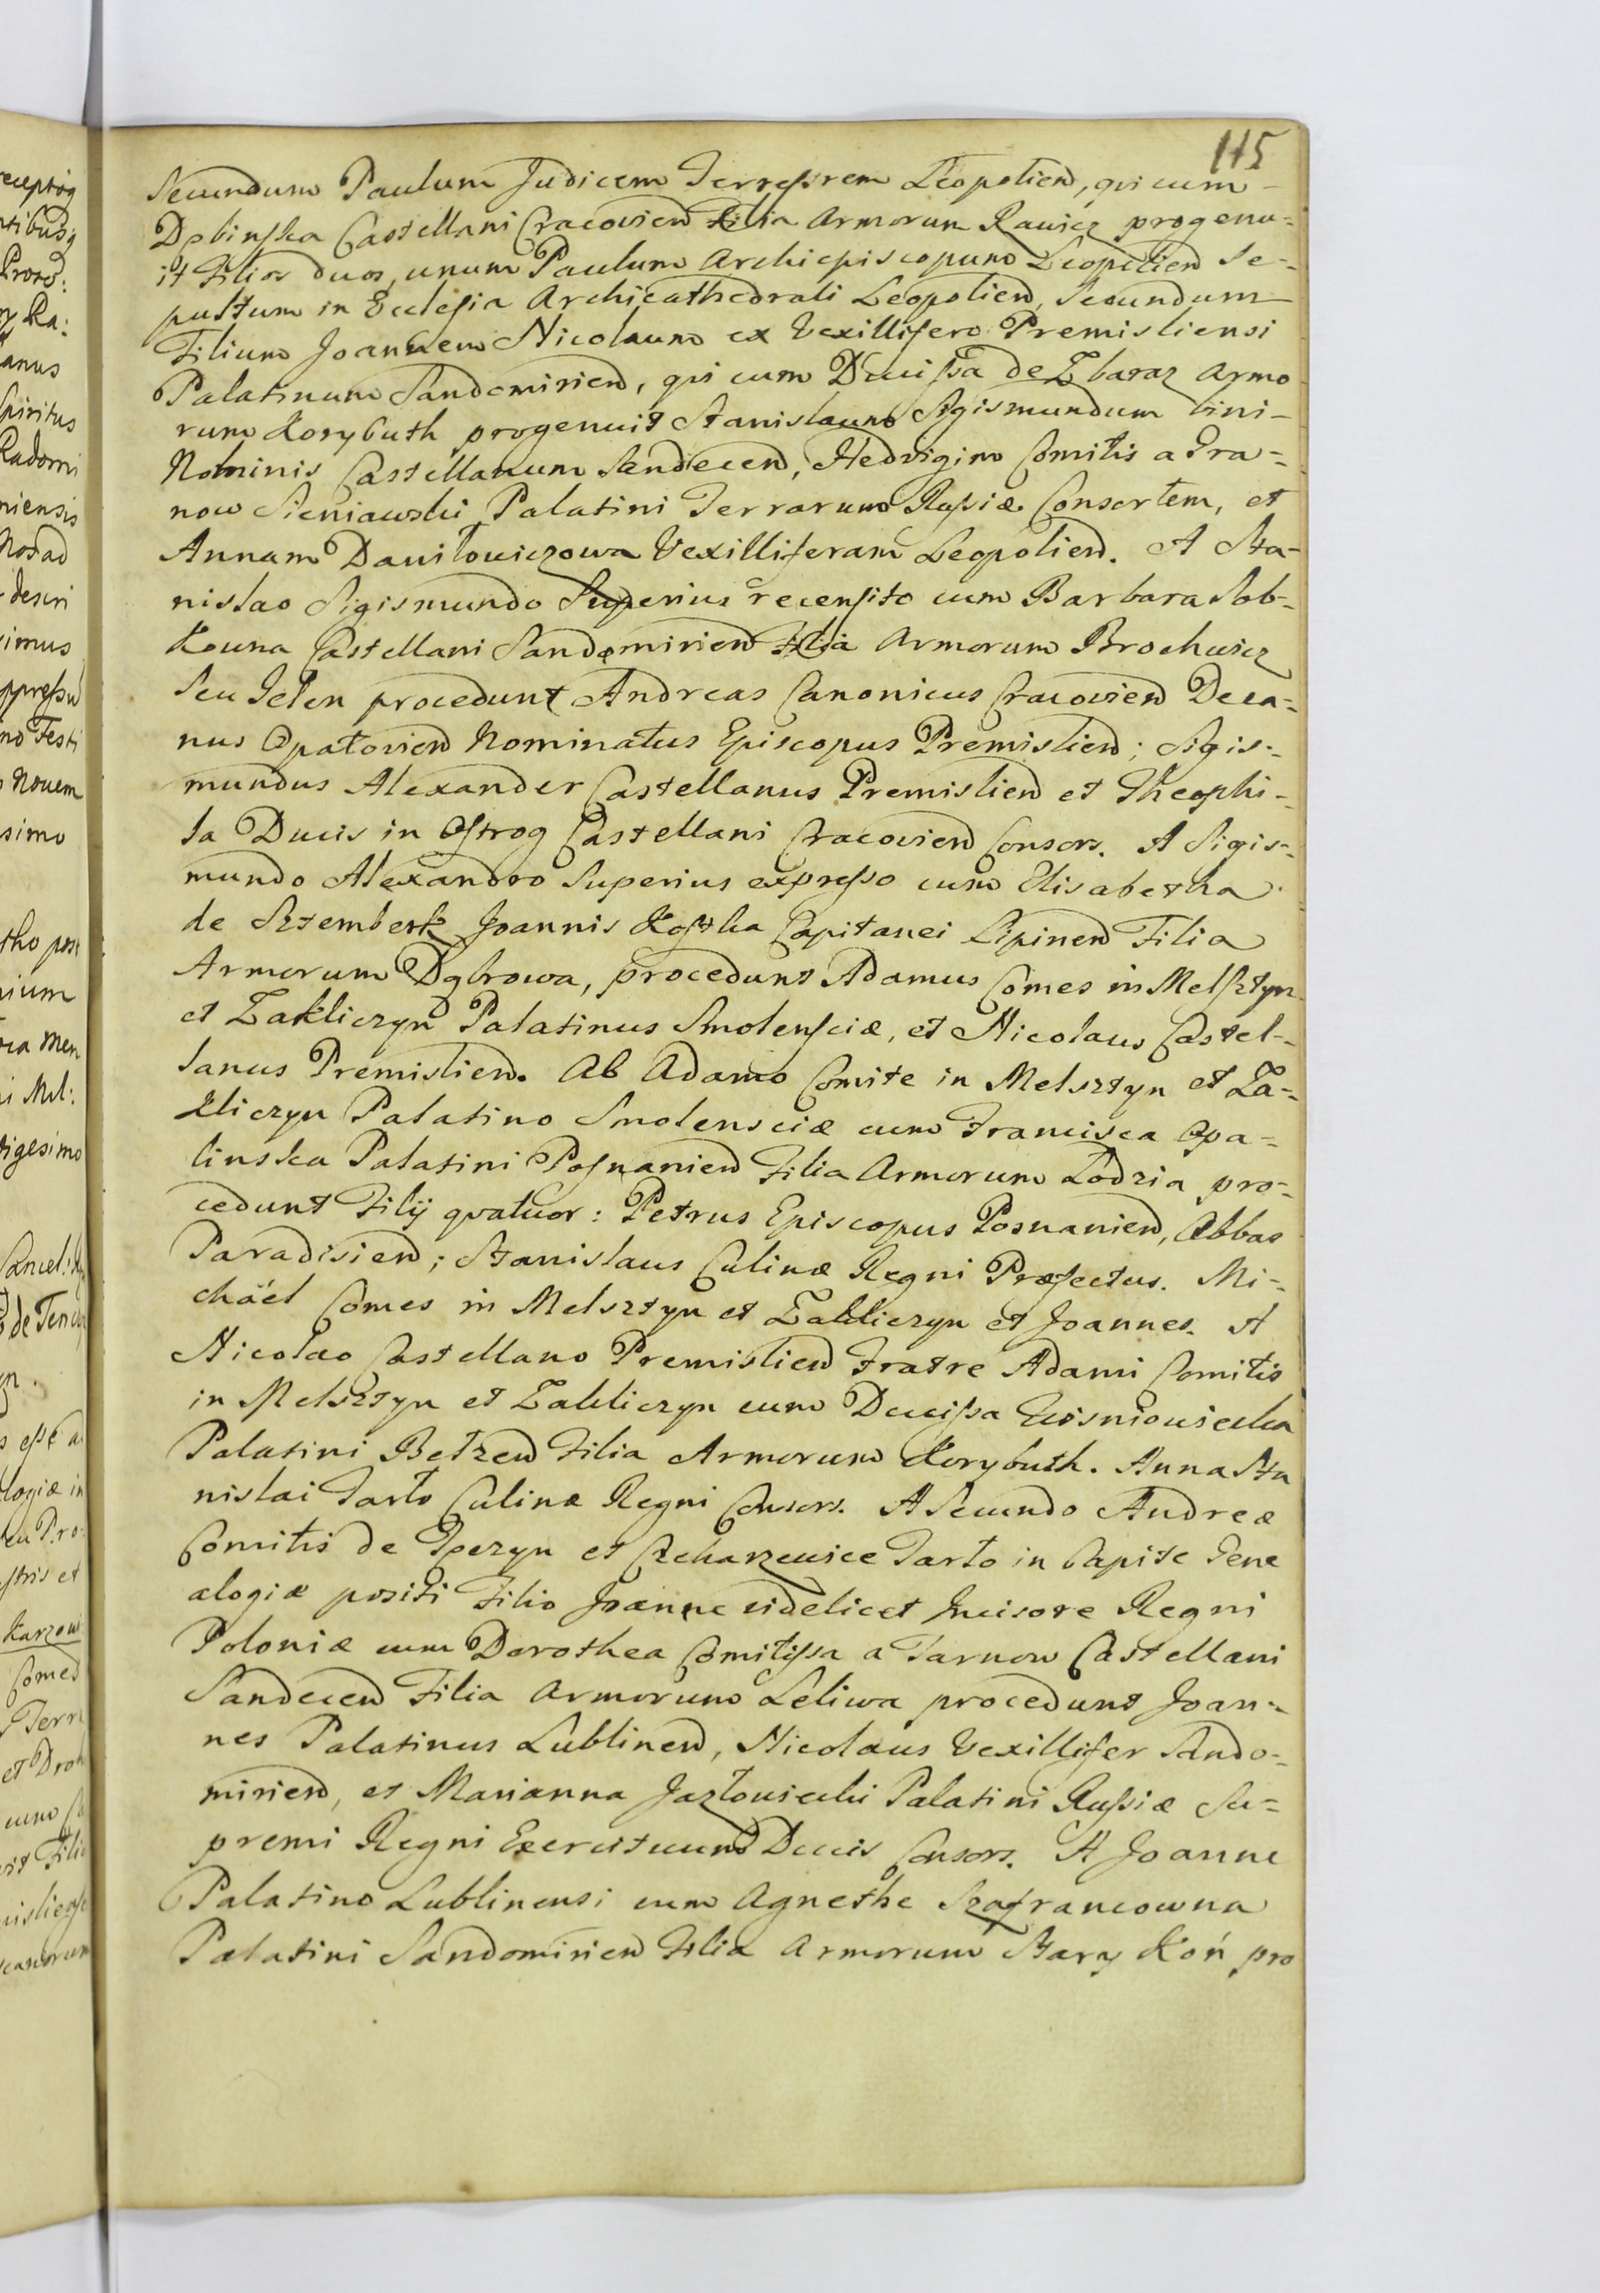 115
Secundum Paulum Judicem Terrestrem Leopolien, qui cum -
Dębinska Castellani Cracovien Filia Armorum Rawicz progenu=
it Filios duos, unum Paulum Archiepiscopum Leopolien Se-
pultum in Ecclesia Archicathedrali Leopolien, Secundum
Filium Joannem Nicolaum ex Vexillifero Premisliensi
Palatinum Sandomirien, qui cum Ducissa de Zbaraz Armo
rum Korybuth progenuit Stanislaum Sigismundum bini-
Nominis Castellanum Sandecen, Hedvigim Comitis a Gra=
now Sieniawski Palatini Terrarum Russiæ Consortem, et
Annam Daniłowiczowa Vexilliferam Leopolien. A Sta-
nislao Sigismundo Superius recensito cum Barbara Sob-
kowna Castellani Sandomirien Filia Armorum Brochwicz
Seu Jelen procedunt Andreas Canonicus Cracovien Deca=
nus Opatovien Nominatus Episcopus Premislien; Sigis-
mundus Alexander Castellanus Premislien et Theophi-
la Ducis in Ostrog Castellani Cracovien Consors. A Sigis-
mundo Alexandro Superius expresso cum Elisabetha
de Sztemberk Joannis Kostka Capitanei Lipinen Filia
Armorum Dąbrowa, procedunt Adamus Comes in Melsztyn
et Zakliczyn Palatinus Smolensciæ, et Nicolaus Castel-
lanus Premislien. Ab Adamo Comite in Melsztyn et Za-
kliczyn Palatino Smolensciæ cum Francisca Opa=
linska Palatini Posnanien Filia Armorum Lodzia pro-
cedunt Filij quatuor: Petrus Episcopus Posnanien, Abbas
Paradisien; Stanislaus Culinæ Regni Præfectus. Mi-
chäel Comes in Melsztyn et Zakliczyn et Joannes. A
Nicolao Castellano Premislien Fratre Adami Comitis
in Melsztyn et Zakliczyn cum Ducissa Wisniowiecka
Palatini Bełzen Filia Armorum Korybuth. Anna Sta
nislai Tarło Culinæ Regni Consors. A Secundo Andreæ
Comitis de Tęczyn et Czekarzewice Tarło in Capite Gene
alogiæ positi Filio Joanne videlicet Incisore Regni
Poloniæ cum Dorothea Comitissa a Tarnow Castellani
Sandecen Filia Armorum Leliwa procedunt Joan-
nes Palatinus Lublinen, Nicolaus Vexillifer Sando-
mirien, et Marianna Jazłowiecki Palatini Russiæ Su=
premi Regni Exercituum Ducis Consors. A Joanne
Palatino Lublinensi cum Agnethe Szafrancowna
Palatini Sandomirien Filia Armorum Stary Koń pro